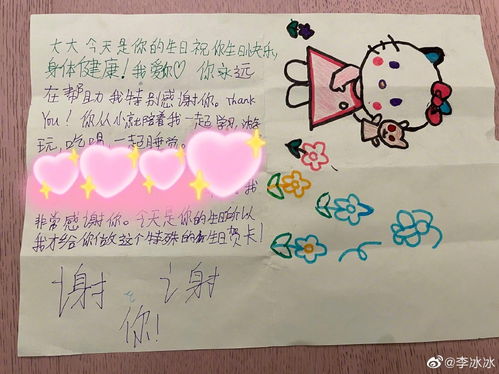 大大今天是你的生日祝你生日快乐,
身体健康!我爱你♡ 你永远
在帮助我特别感谢你。Thank
You!你从小就陪着我一起学习,游
玩,吃喝,一起睡觉。
我
非常感谢你。今天是你的生日所以
我才给你做这个特殊的生日贺卡!
谢谢
你!
@李冰冰